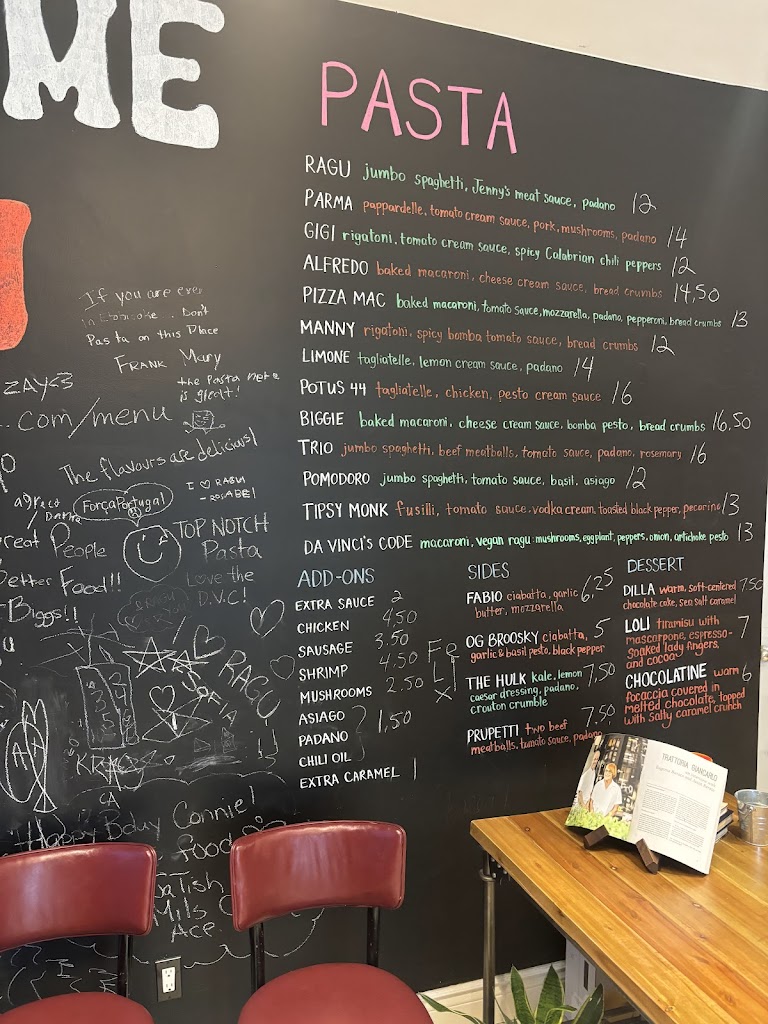 ME
PASTA
RAGU jumbo spaghetti, Jenny's meat sauce, padano 12
PARMA pappardelle, tomato cream sauce, pork, mushrooms, padano 14
GIGI rigatoni, tomato cream sauce, spicy Calabrian chili peppers 12
ALFREDO baked macaroni, cheese cream sauce, bread crumbs 14,50
PIZZA MAC baked macaroni, tomato sauce, mozzarella, padano, pepperoni, bread crumbs 13
MANNY rigatoni, spicy bomba tomato sauce, bread crumbs 12
LIMONE tagliatelle, lemon cream sauce, padano 14
POTUS 44 tagliatelle, chicken, pesto cream sauce 16
BIGGIE baked macaroni, cheese cream sauce, bomba pesto, bread crumbs 16,50
TRIO jumbo spaghetti, beef meatballs, tomato sauce, padano, rosemary 16
POMODORO jumbo spaghetti, tomato sauce, basil, asiago 12
TIPSY MONK fusilli, tomato sauce, vodka cream, toasted black pepper, pecorino 13
DA VINCI'S CODE macaroni, vegan ragu: mushrooms, eggplant, peppers, onion, artichoke pesto 13
ADD-ONS
EXTRA SAUCE 2
CHICKEN 4,50
SAUSAGE 3.50
SHRIMP 4.50
MUSHROOMS 2.50
ASIAGO
PADANO 1,50
CHILI OIL
EXTRA CARAMEL 1
SIDES
FABIO ciabatta, garlic 6,25
butter, mozzarella
OG BROOSKY ciabatta, 5
garlic & basil pesto, black pepper
THE HULK kale, lemon 7,50
caesar dressing, padano,
crouton crumble
PRUPETTI two beef 7.50
meatballs, tomato sauce, padano
DESSERT
DILLA warm, soft-centered 7.50
chocolate cake, sea salt caramel
LOLI tiramisu with 7
mascarpone, espresso-
soaked lady fingers,
and cocoa
CHOCOLATINE warm 6
focaccia covered in
melted chocolate, topped
with salty caramel crunch
If you are ever
in Etobicoke . Don't
Pasta on this Place
FRANK Mary
the Pasta here
is great!
ZAY<3
.com/menu
The flavours are delicious!
I ♡ RAGU
Força Portugal
TOP NOTCH
Pasta
Great People
Better Food!!
Biggs!!
Love the
D.V.C!
RAGU
SOFIA
Felix!
CA
Happy Bday Connie!
Food
Mils
Ace
TRATTORIA GIANCARLO